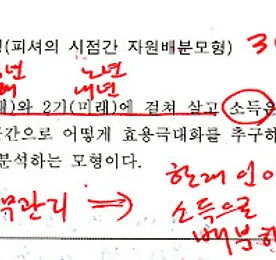 (피셔의 시점간 자원배분모형) 3
년 노년
내년
와 2기(미래)에 걸쳐 살고 소득은
간으로 어떻게 효용극대화를 추구하
분석하는 모형이다.
관리 ⇒ 현재 인
소득으로
배분